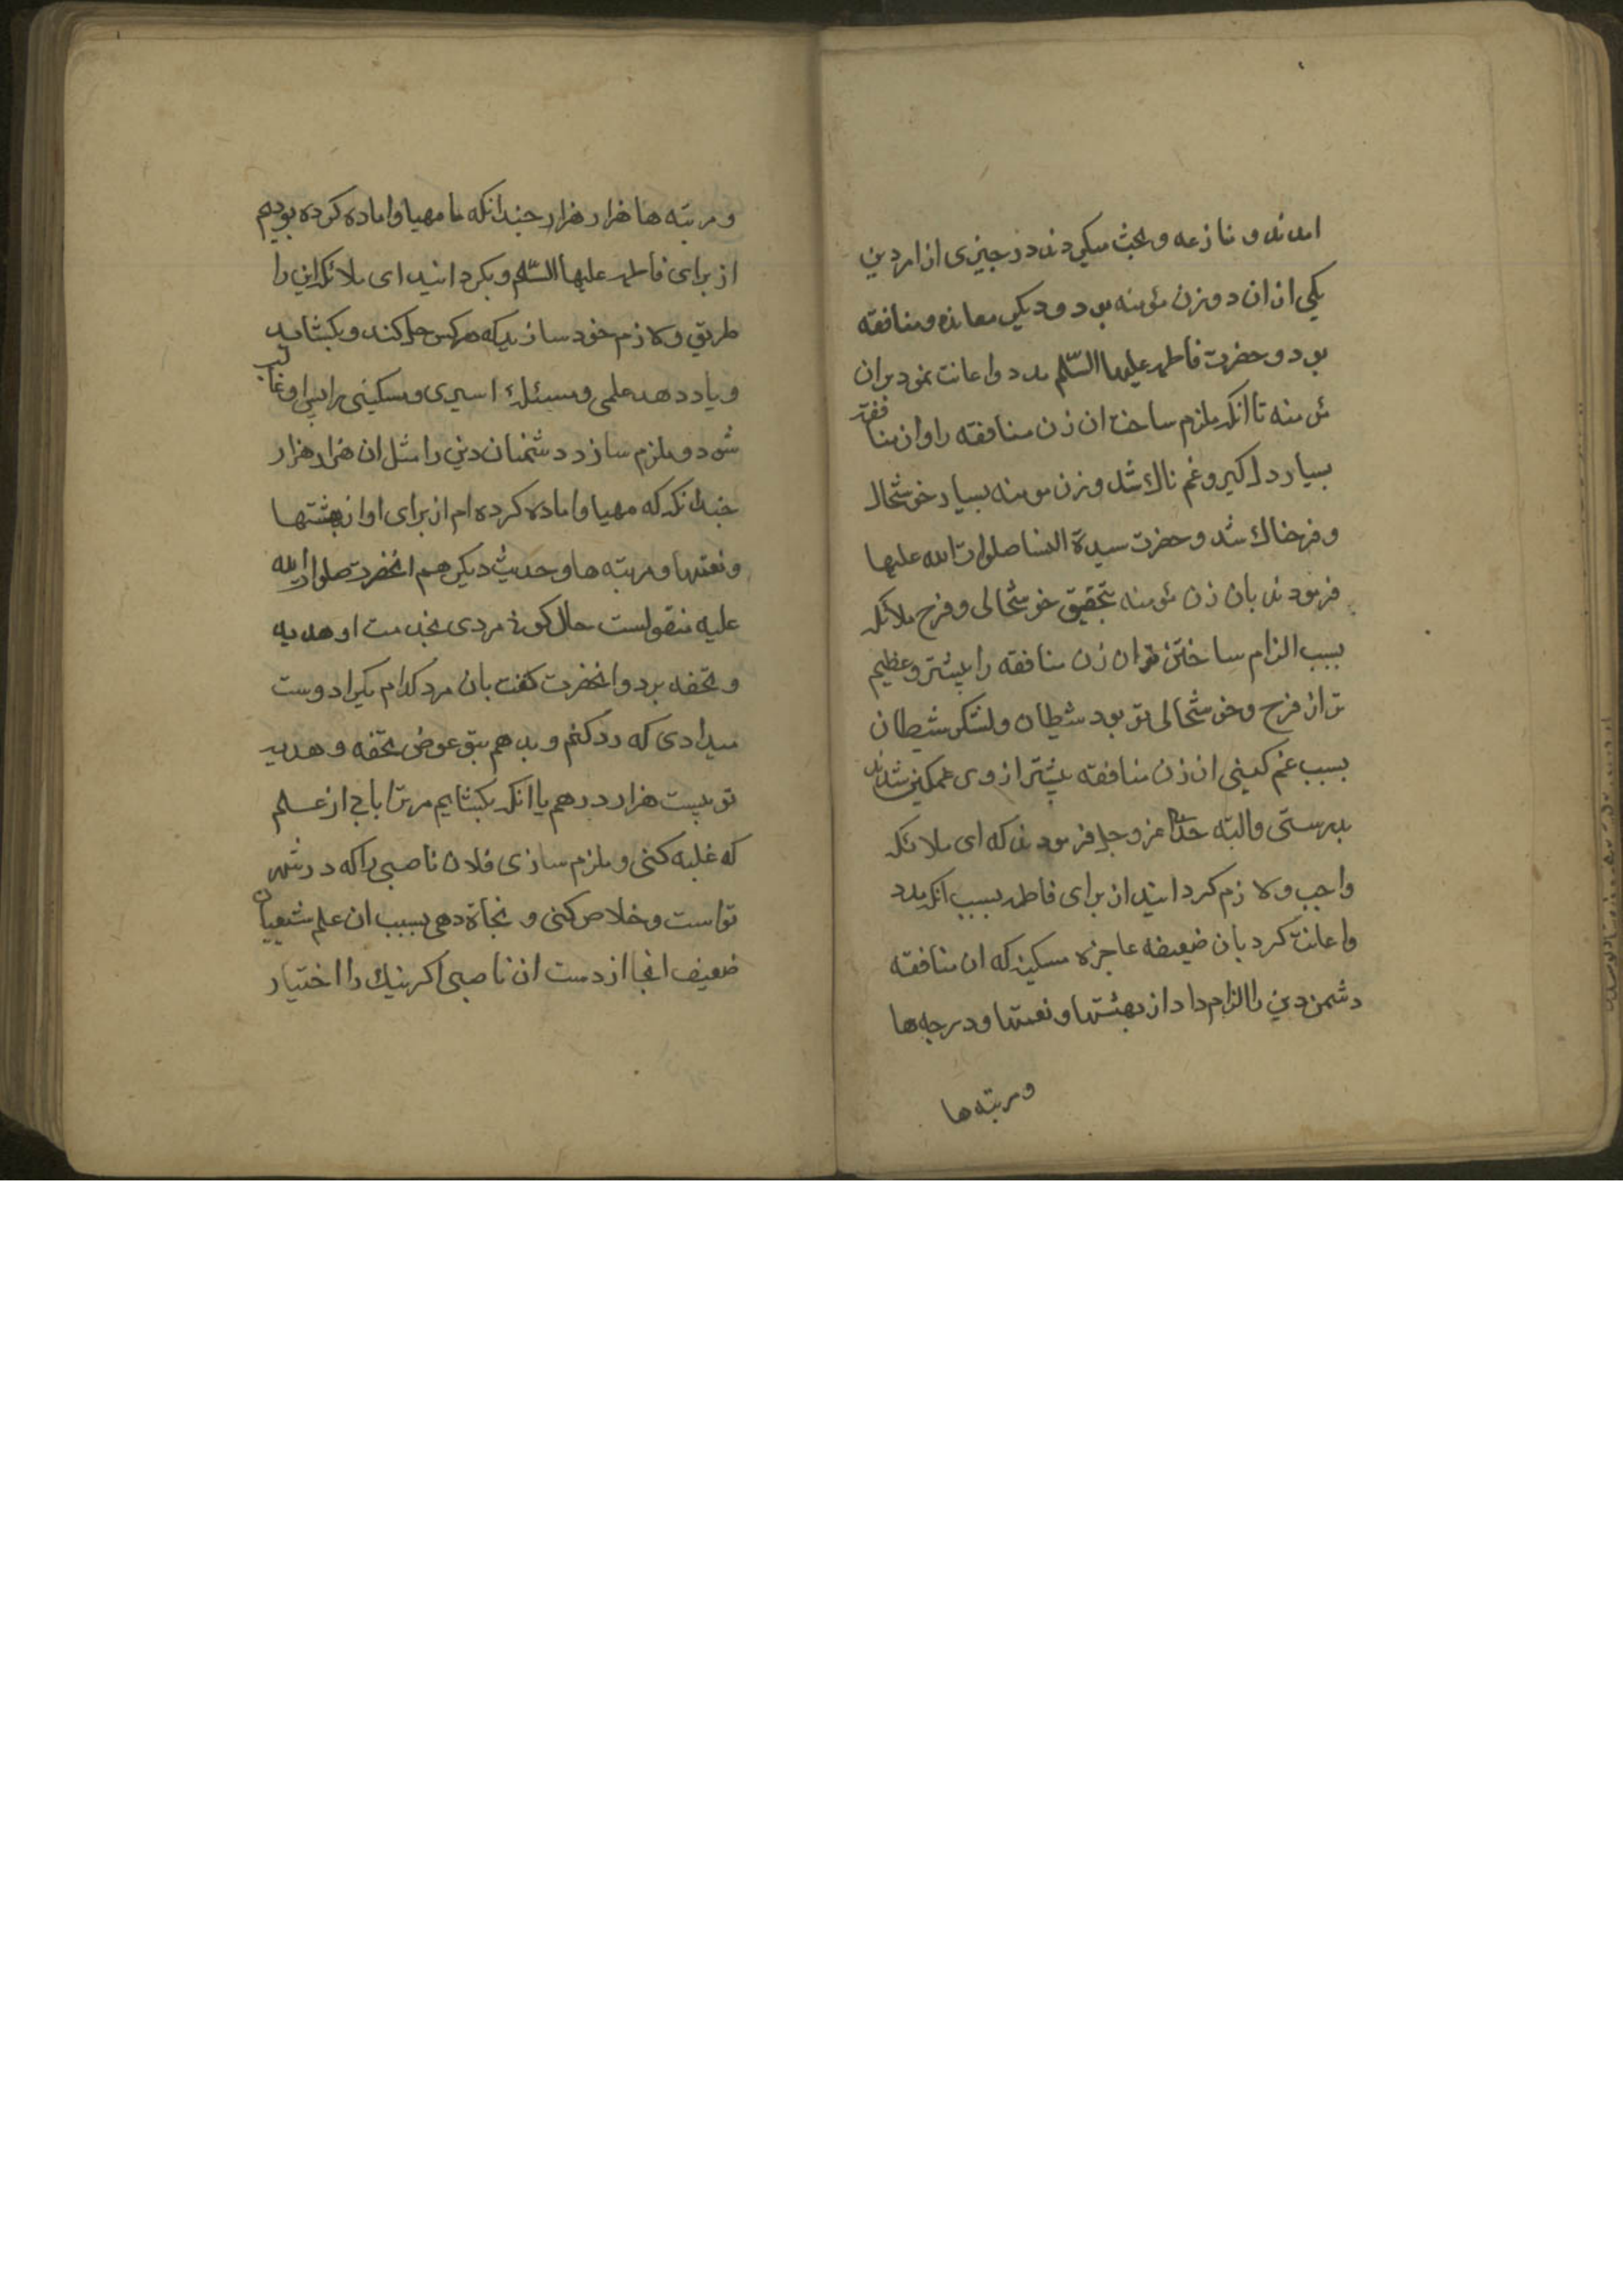 امدند و منازعه و بحث میکردند در چیزی از امر دین
یکی از ان دو زن مؤمنه بود و دیکری معانده و منافقه
بود و حضرت فاطمه علیها السّلم مدد و اعانت نمود بر ان
مؤمنه تا انکه ملزم ساخت ان زن منافقه را و ان منافقه
بسیار دلکیر و غم ناک شد و زن مومنه بسیار خوشحال
و فرحناک شد و حضرت سیدة النسا صلوات الله علیها
فرمودند بان زن مؤمنه بتحقیق خوشحالی و فرح ملائکه
بسبب الزام ساختن تو ان زن منافقه را بیشتر و عظیم
تر از فرح و خوشحالی تو بود شیطان و لشکر شیطان
بسبب غم کینی ان زن منافقه بیشتر از وی غمکین شدند
بدرستی و البته خدا عز و جل فرمودند که ای ملائکه
واجب و لازم کردانید از برای فاطمه بسبب انکه مدد
و اعانت کرد بان ضعیفه عاجزه مسکینه که ان منافقه
دشمن دین را الزام داد از بهشتها و نعمتها و درجه ها
و مرتبه ها
و مرتبه ها هزار هزار چندانکه ما مهیا و اماده کرده بودیم
از برای فاطمه علیها السّلم و بکردانید ای ملائکه این را
طریق و لازم خود سازید که هر کس حل کند و بکشاید
و یاد دهد علمی و مسئله اسیری و مسکینی را پس او غالب
شود و ملزم سازد دشمنان دین را مثل ان هزار هزار
چندانکه که مهیا و اماده کرده ام از برای او از بهشتها
و نعمتها و مرتبه ها و حدیث دیکر هم انحضرت صلوات الله
علیه منقولست حال کونه مردی بخدمت او هدیه
و تحفه برد و انحضرت کفت بان مرد کدام یکرا دوست
میداری که رد کنم و بدهم بتو عوض تحفه و هدیه
تو بیست هزار درهم یا انکه بکشایم مر ترا بابی از علم
که غلبه کنی و ملزم سازی فلان ناصبی را که در شهر
تو است و خلاص کنی و نجاة دهی بسبب ان علم شیعیان
ضعیف انجا از دست ان ناصبی اکر نیک را اختیار